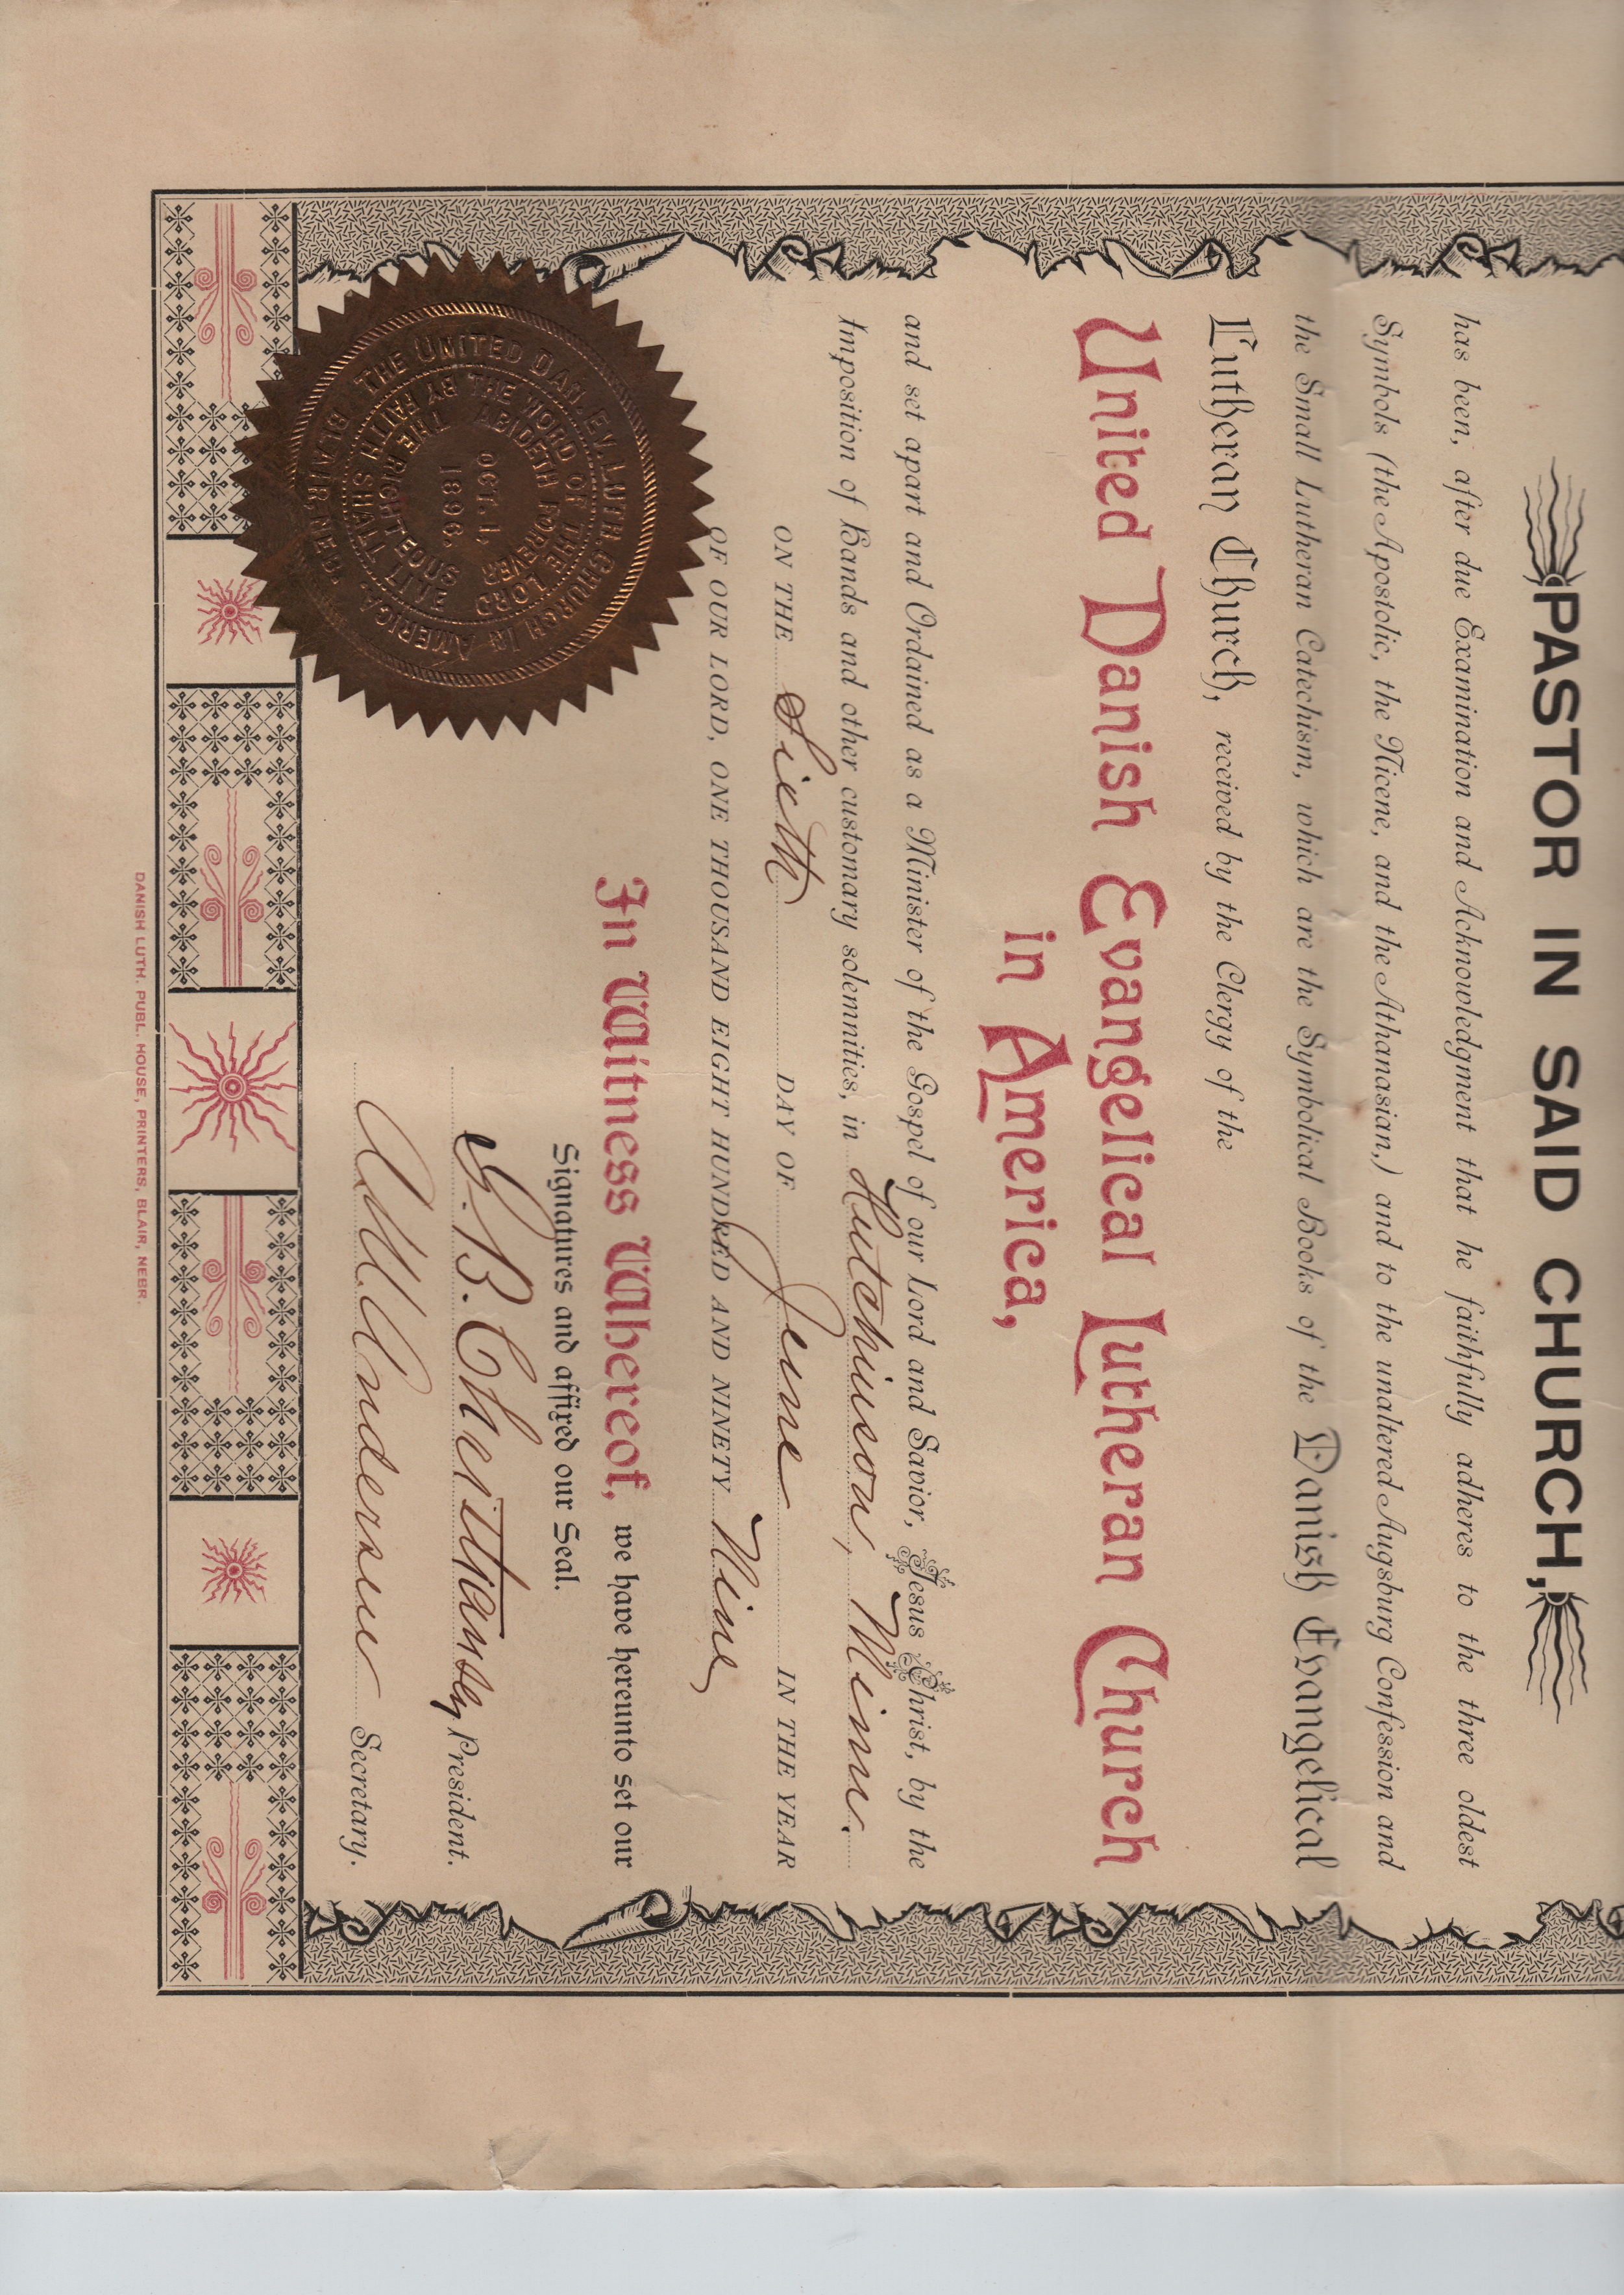 PASTOR IN SAID CHURCH,
has been, after due Examination and Acknowledgment that he faithfully adheres to the three oldest
Symbols (the Apostolic, the Nicene, and the Athanasian,) and to the unaltered Augsburg Confession and
the Small Lutheran Catechism, which are the Symbolical Books of the Danish Evangelical
Lutheran Church, received by the Clergy of the
United Danish Evangelical Lutheran Church
in America,
and set apart and Ordained as a Minister of the Gospel of our Lord and Savior, Jesus Christ, by the
Imposition of Hands and other customary solemnities, in Hutchinson, Minn.
ON THE Sixth DAY OF June IN THE YEAR
OF OUR LORD, ONE THOUSAND EIGHT HUNDRED AND NINETY Nine
In Witness Whereof, we have hereunto set our
Signatures and affixed our Seal.
G. B. Christiansen President.
A. M. Andersen Secretary.
THE UNITED DAN. EV. LUTH. CHURCH IN AMERICA.
BLAIR, NEB.
THE WORD OF THE LORD
ABIDETH FOREVER
THE RIGHTEOUS
SHALL LIVE BY FAITH
OCT. 1.
1896.
DANISH LUTH. PUBL. HOUSE, PRINTERS, BLAIR, NEBR.